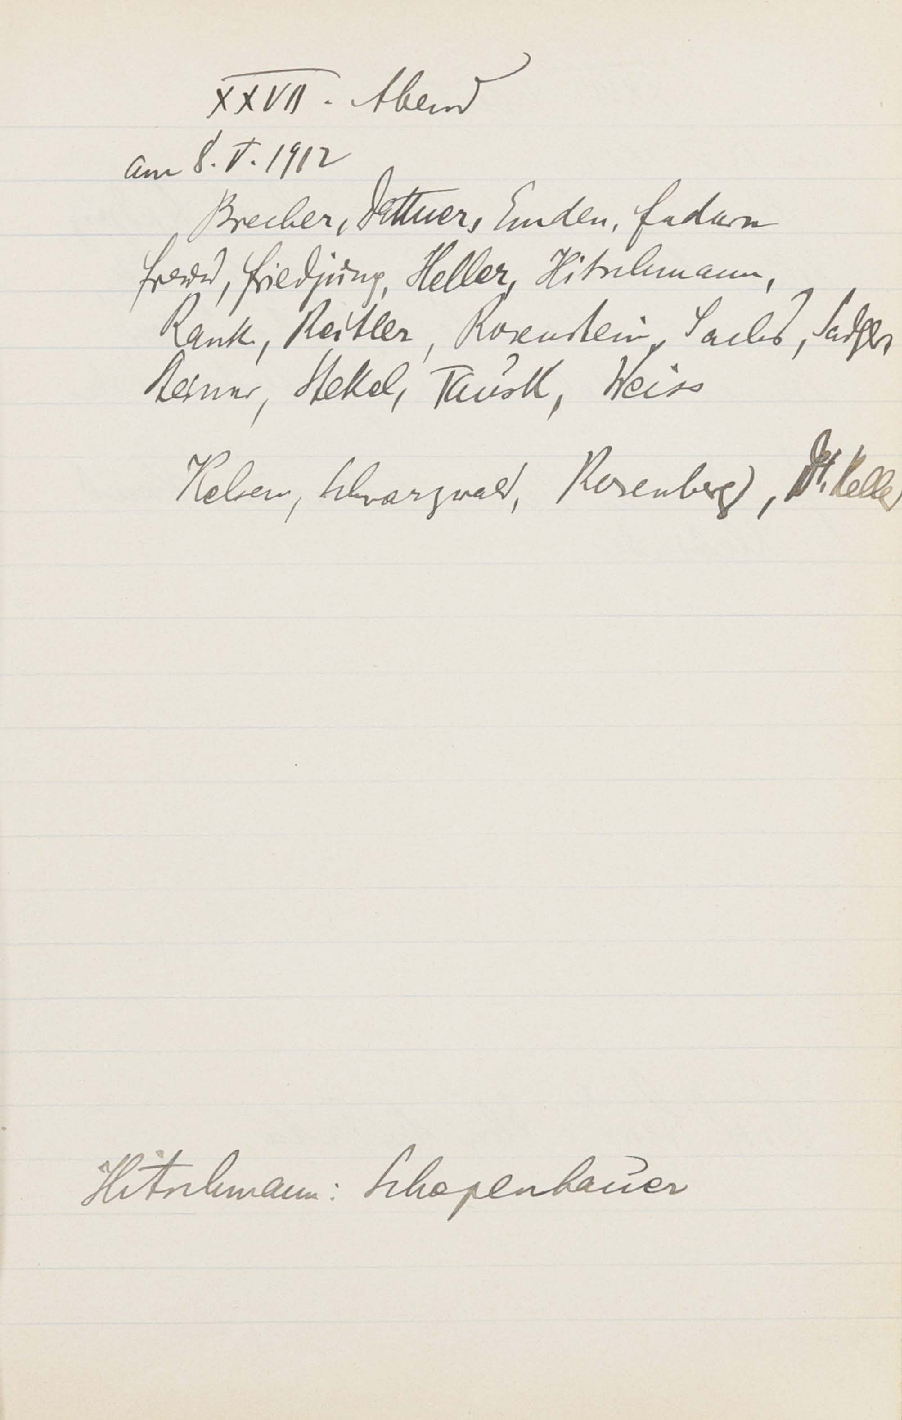 XXVII. Abend
am 8. V. 1912
Brecher, Dattner, Emden, Federn
Freud, Friedjung, Heller, Hitschmann,
Rank, Reitler, Rosenstein, Sachs, Sadger
Steiner, Stekel, Tausk, Weiss
Kelsen, Schwarzwald, Rosenberg, Keller
Hitschmann: Schopenhauer